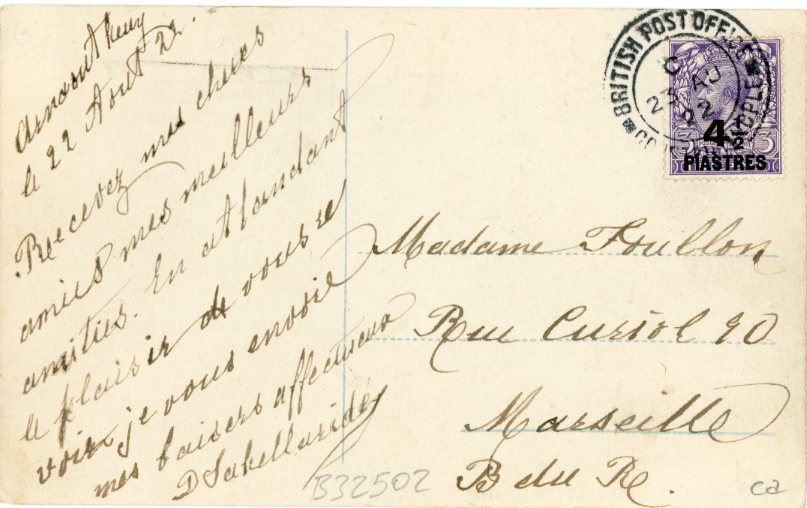 Arnaout Keuy
le 22 Aout 22.
Recevez mes chères
amies mes meilleurs
amities. En attandant
le plaisir de vous re
voir je vous envoie
mes baisers affectueux
D Sakellaridés
BRITISH POST OFFICE
C
23 AU
22
4 1/2
PIASTRES
3 3
Madame Foullon
Rue Curiol 90
Marseille
B du R.
B32502
ca